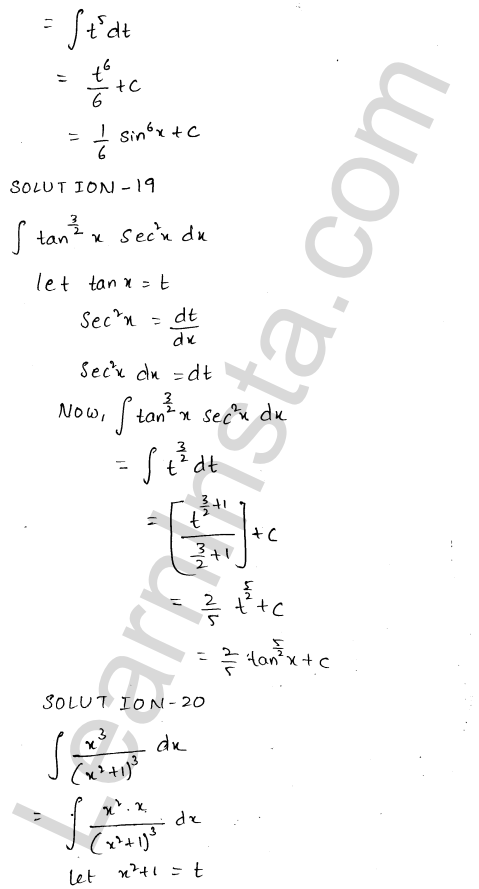 = ∫ t⁵ dt
= t⁶/6 + C
= 1/6 sin⁶x + C
SOLUTION-19
∫ tan^(3/2) x sec²x dx
let tan x = t
sec²x = dt/dx
sec²x dx = dt
Now, ∫ tan^(3/2) x sec²x dx
= ∫ t^(3/2) dt
= [t^(3/2+1) / (3/2+1)] + C
= 2/5 t^(5/2) + C
= 2/5 tan^(5/2) x + C
SOLUTION-20
∫ x³/(x²+1)³ dx
= ∫ x²·x/(x²+1)³ dx
let x²+1 = t
LearnInsta.com